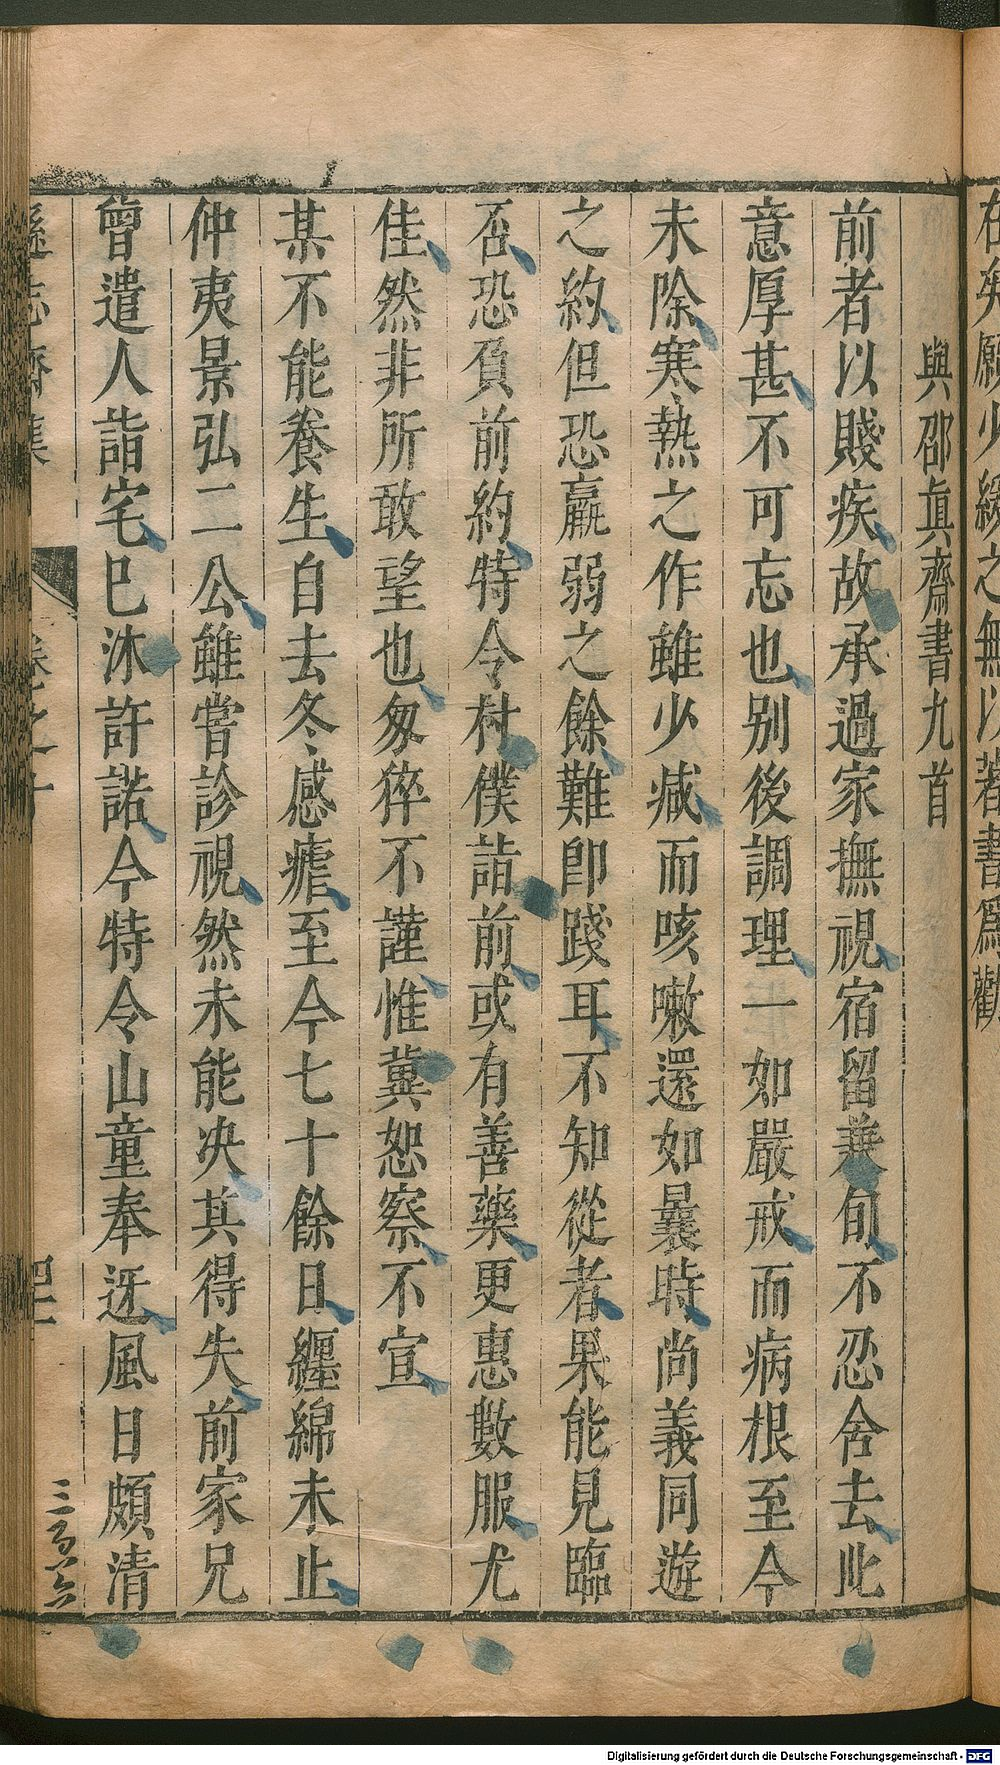 在矣願少緩之無以著書爲勸
與邵眞齋書九首
前者以賤疾故承過家撫視宿留兼旬不忍舍去此
意厚甚不可忘也别後調理一如嚴戒而病根至今
未除寒熱之作雖少减而咳嗽還如曩時尚義同遊
之約但恐羸弱之餘難卽踐耳不知從者果能見臨
否恐負前約特令村僕詣前或有善藥更惠數服尤
佳然非所敢望也匆猝不謹惟冀恕察不宣
某不能養生自去冬感瘧至今七十餘日纏綿未止
仲夷景弘二公雖嘗診視然未能决其得失前家兄
曾遣人詣宅巳沐許諾今特令山童奉迓風日頗清
遜志齋集
卷之十
四十二
三百六
Digitalisierung gefördert durch die Deutsche Forschungsgemeinschaft - DFG